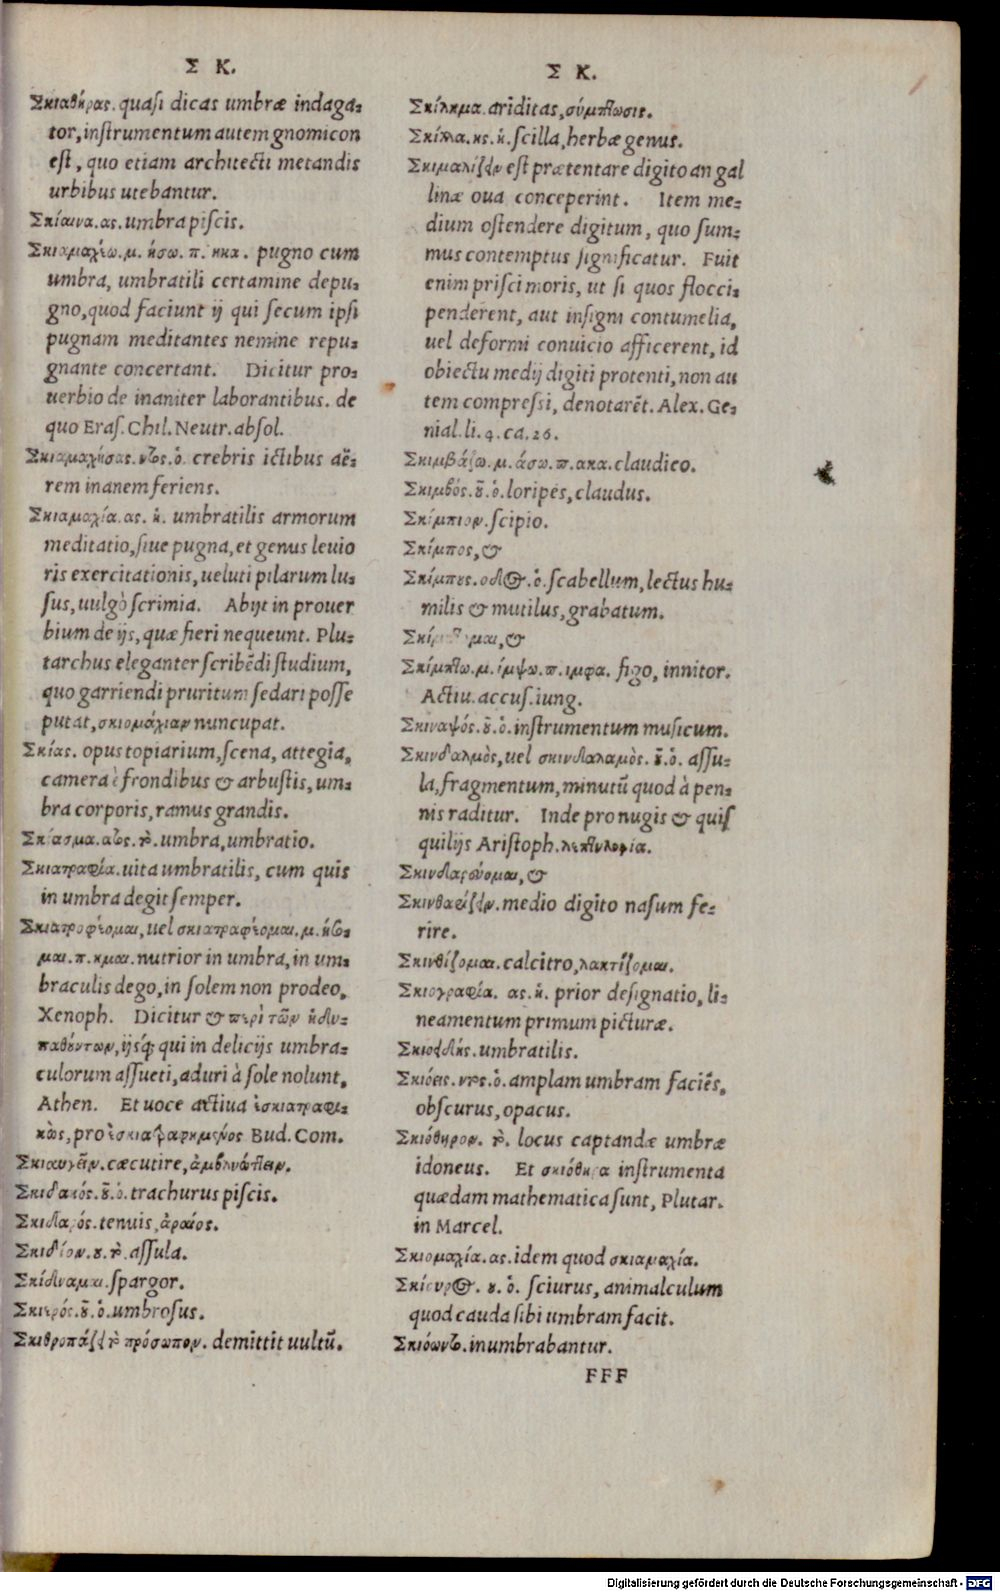 Σ Κ.
Σκιαθήρας. quasi dicas umbræ indaga-
tor, instrumentum autem gnomicon
est, quo etiam architecti metandis
urbibus utebantur.
Σκίαινα. ας. umbra piscis.
Σκιαμαχέω. μ. ήσω. π. ηκα. pugno cum
umbra, umbratili certamine depu-
gno, quod faciunt ij qui secum ipsi
pugnam meditantes nemine repu-
gnante concertant. Dicitur pro-
uerbio de inaniter laborantibus. de
quo Eras. Chil. Neutr. absol.
Σκιαμαχήσας. ντος. ὁ. crebris ictibus aë-
rem inanem feriens.
Σκιαμαχία. ας. ἡ. umbratilis armorum
meditatio, siue pugna, et genus leuio
ris exercitationis, ueluti pilarum lu-
sus, uulgò scrimia. Abijt in prouer
bium de ijs, quæ fieri nequeunt. Plu-
tarchus eleganter scribēdi studium,
quo garriendi pruritum sedari posse
putat, σκιομάχιαν nuncupat.
Σκίας. opus topiarium, scena, attegia,
camera è frondibus & arbustis, um-
bra corporis, ramus grandis.
Σκίασμα. ατος. τὸ. umbra, umbratio.
Σκιατραφία. uita umbratilis, cum quis
in umbra degit semper.
Σκιατροφέομαι, uel σκιατραφέομαι. μ. ήσο-
μαι. π. ημαι. nutrior in umbra, in um-
braculis dego, in solem non prodeo,
Xenoph. Dicitur & περὶ τῶν ἡδυ-
παθούντων, ijsq; qui in delicijs umbra-
culorum assueti, aduri à sole nolunt,
Athen. Et uoce actiua ἐσκιατραφι-
κὼς, pro ἐσκιατραφημένος Bud. Com.
Σκιαυγεῖν. cæcutire, ἀμβλυώττειν.
Σκιδακός. οῦ. ὁ. trachurus piscis.
Σκιδαρός. tenuis, ἀραιός.
Σκιδίον. ου. τὸ. assula.
Σκίδναμαι. spargor.
Σκιερός. οῦ. ὁ. umbrosus.
Σκιθροπάζει τὸ πρόσωπον. demittit uultū.
Σ Κ.
Σκίλημα. ariditas, σύμπτωσις.
Σκίλλα. ης. ἡ. scilla, herbæ genus.
Σκιμαλίζειν est prætentare digito an gal
linæ oua conceperint. Item me-
dium ostendere digitum, quo sum-
mus contemptus significatur. Fuit
enim prisci moris, ut si quos flocci-
penderent, aut insigni contumelia,
uel deformi conuicio afficerent, id
obiectu medij digiti protenti, non au
tem compressi, denotarēt. Alex. Ge-
nial. li. 4. ca. 26.
Σκιμβάζω. μ. άσω. π. ακα. claudico.
Σκιμβός. οῦ. ὁ. loripes, claudus.
Σκίμπιον. scipio.
Σκίμπος, &
Σκίμπους. οδος. ὁ. scabellum, lectus hu-
milis & mutilus, grabatum.
&
Σκίμπτω. μ. ίμψω. π. ιμφα. figo, innitor.
Actiu. accus. iung.
Σκιναψός. οῦ. ὁ. instrumentum musicum.
Σκινδαλμὸς, uel σκινδαλαμὸς. οῦ. ὁ. assu-
la, fragmentum, minutū quod à pen-
nis raditur. Inde pro nugis & quis
quilijs Aristoph. λεπτολογία.
Σκινδαρεύομαι, &
Σκινθαρίζειν. medio digito nasum fe-
rire.
Σκινθίζομαι. calcitro, λακτίζομαι.
Σκιογραφία. ας. ἡ. prior designatio, li-
neamentum primum picturæ.
Σκιοειδής. umbratilis.
Σκιόεις. ντος. ὁ. amplam umbram faciēs,
obscurus, opacus.
Σκιόθηρον. τὸ. locus captandæ umbræ
idoneus. Et σκιόθηρα instrumenta
quædam mathematica sunt, Plutar.
in Marcel.
Σκιομαχία. ας. idem quod σκιαμαχία.
Σκίουρος. ου. ὁ. sciurus, animalculum
quod cauda sibi umbram facit.
Σκιόωντο. inumbrabantur.
FFF
Digitalisierung gefördert durch die Deutsche Forschungsgemeinschaft - DFG